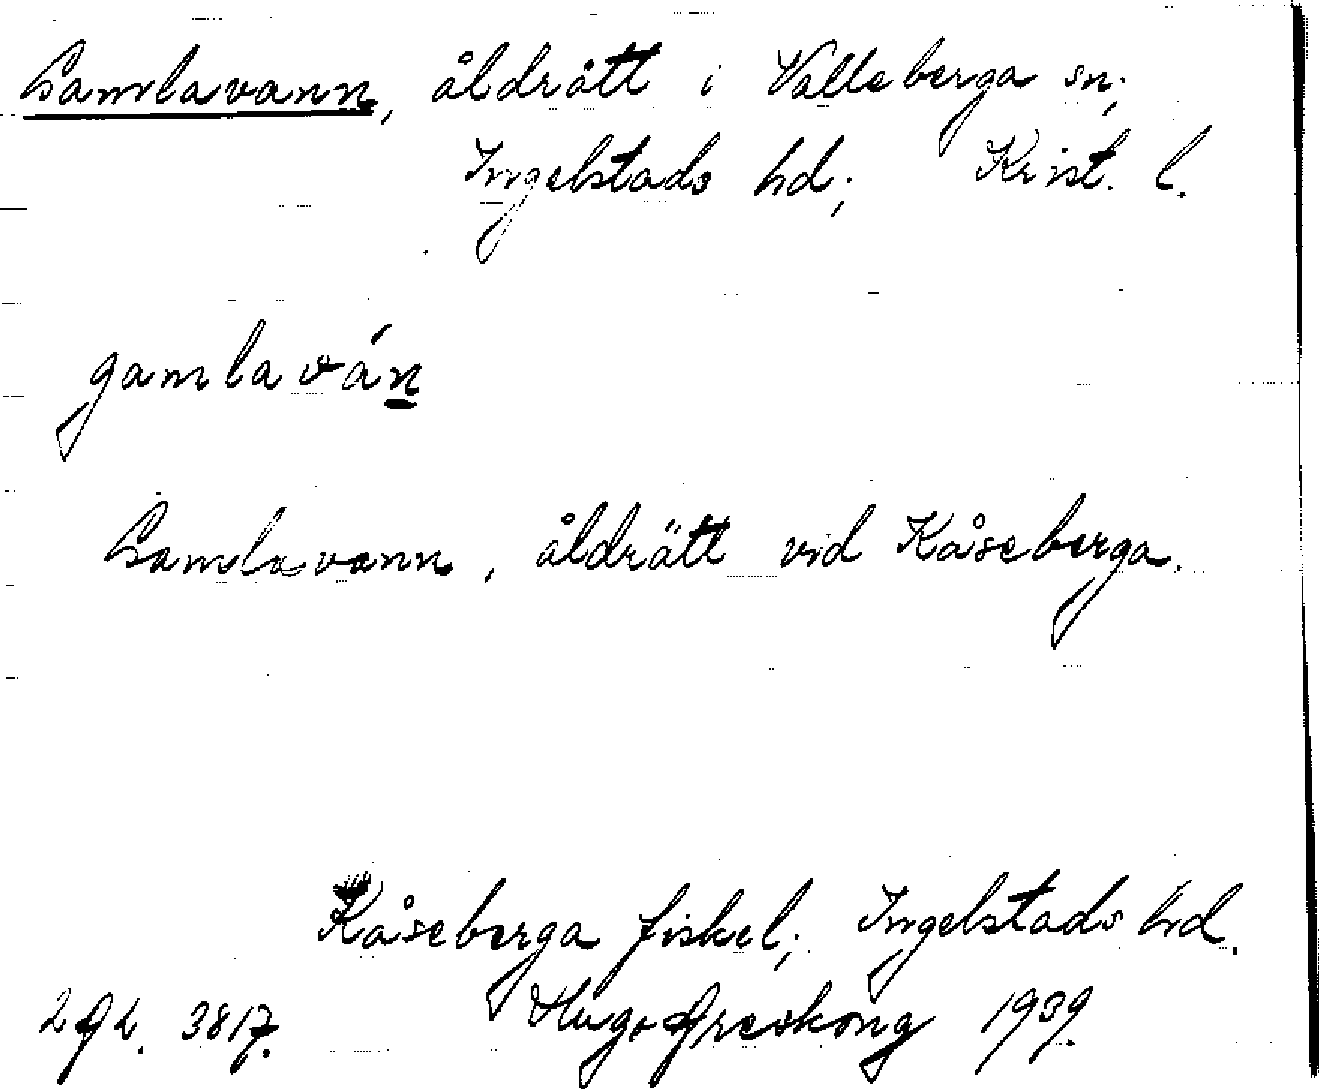 Gamlavann, åldrätt i Valleberga sn;
Ingelstads hd; Krist. l.
gamlaván
Gamlavann, åldrätt vid Kåseberga.
Kåseberga fiskel; Ingelstads hd.
3817. Hugo Areskoug 1939.